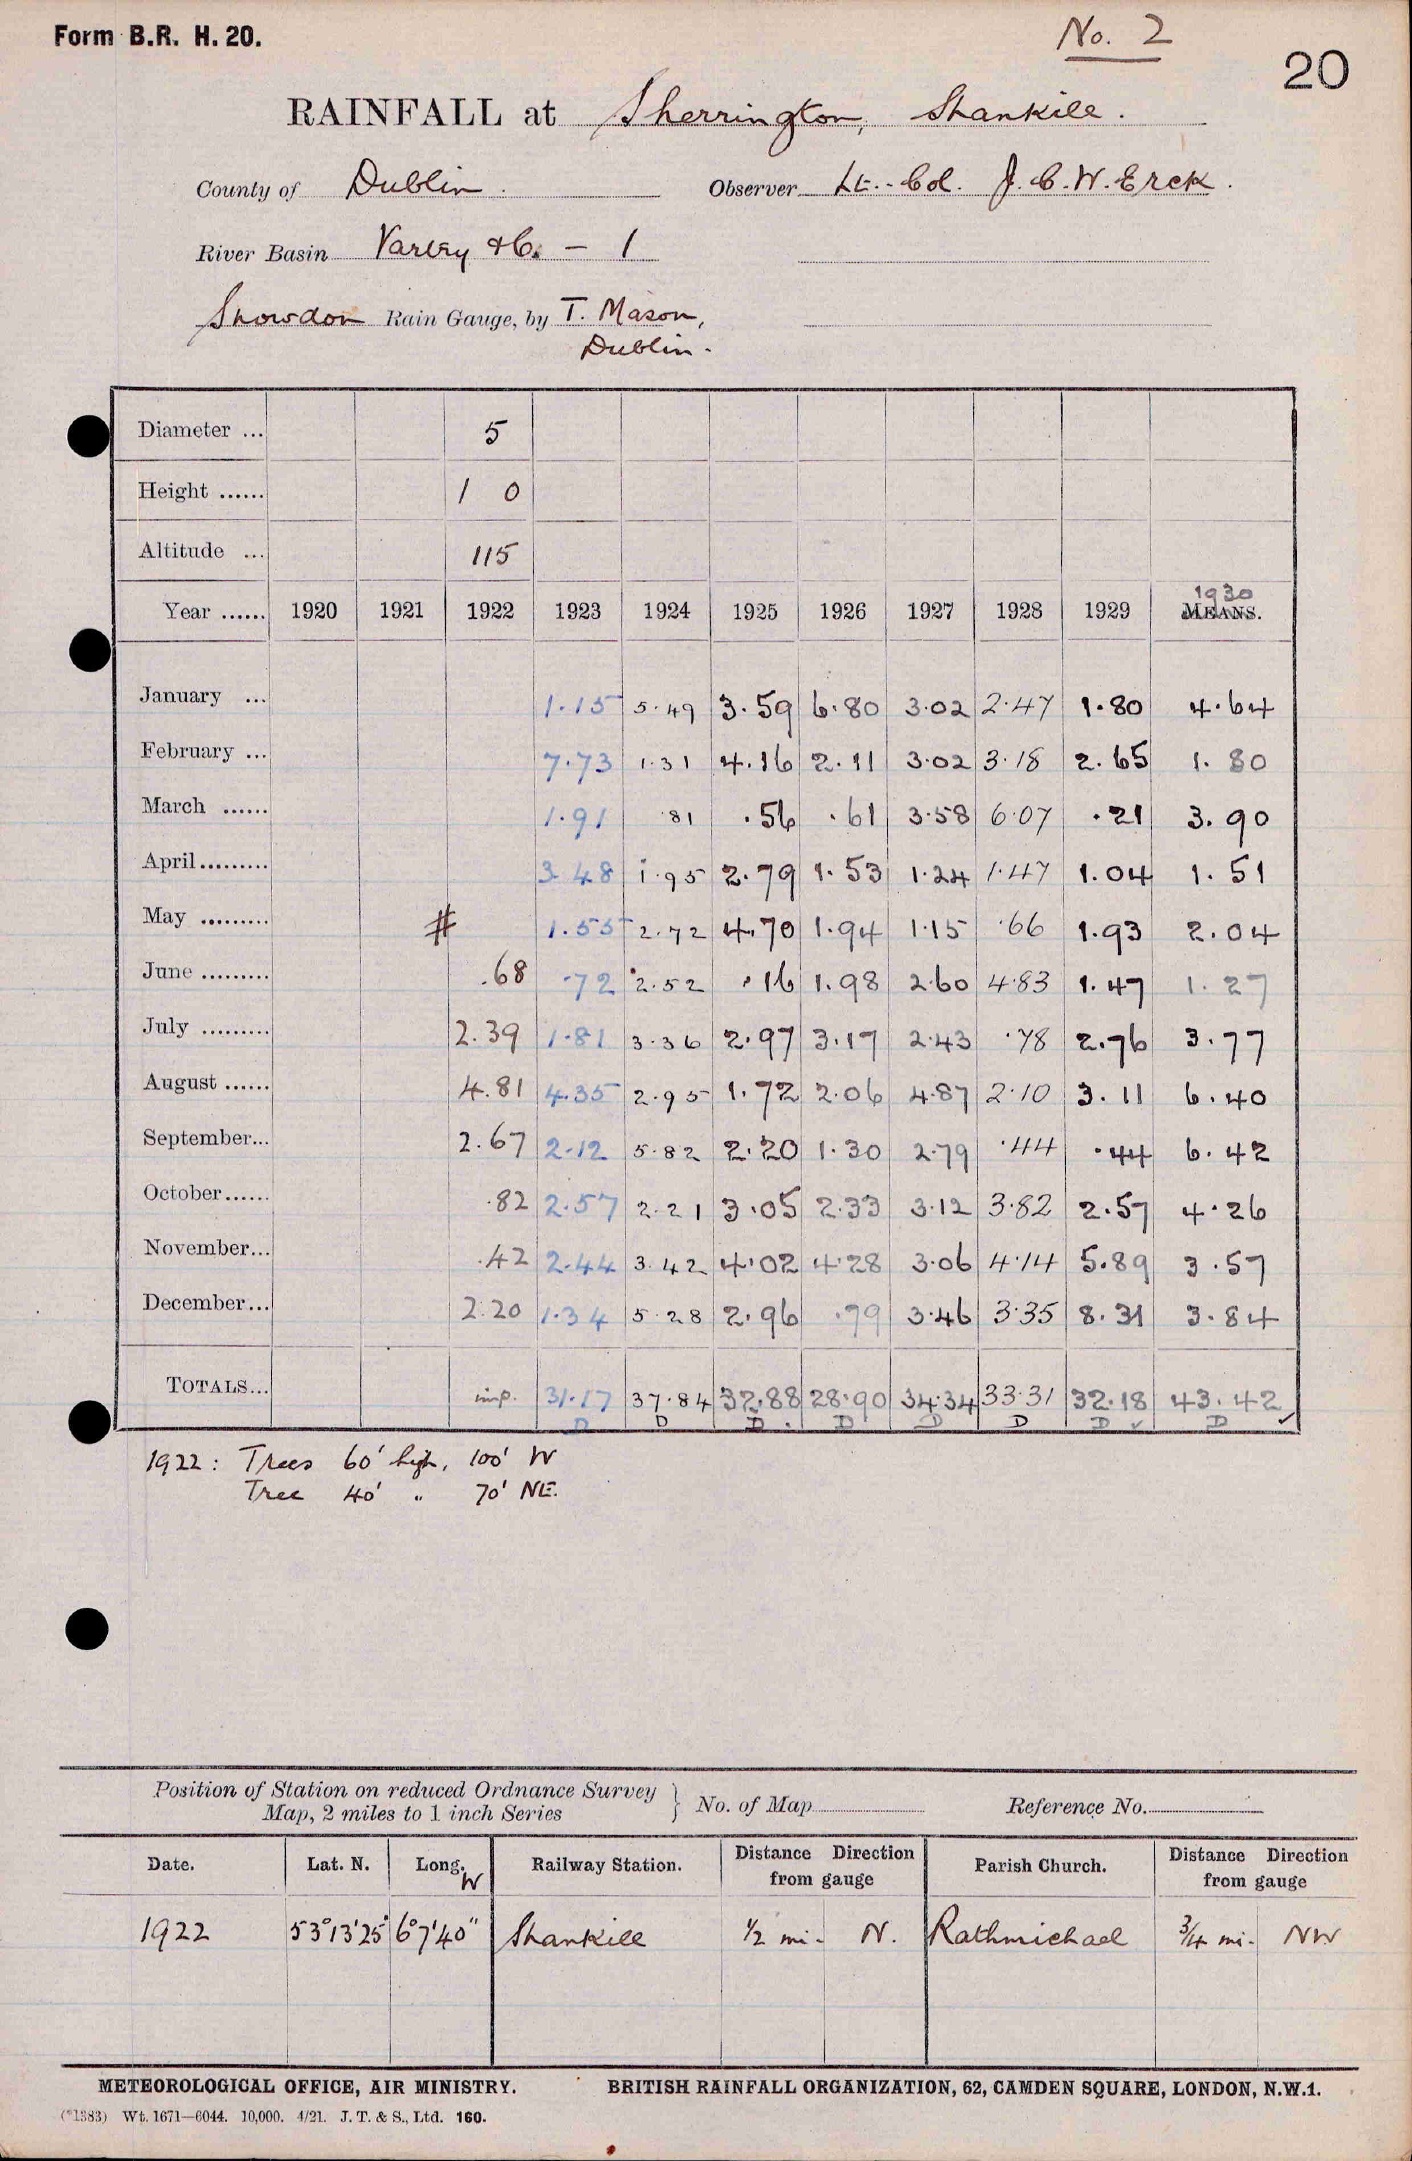 Form B.R. H. 20.
No. 2
20
RAINFALL at Sherrington, Shankill.
County of Dublin. Observer Lt.-Col. J.C.W. Erck.
River Basin Vartry &c. – 1
Snowdon Rain Gauge, by T. Mason,
Dublin.
Diameter ... 5
Height ...... 1 0
Altitude ... 115
1930
Year ...... 1920 1921 1922 1923 1924 1925 1926 1927 1928 1929 MEANS.
January ... 1.15 5.49 3.59 6.80 3.02 2.47 1.80 4.64
February ... 7.73 1.31 4.16 2.11 3.02 3.18 2.65 1.80
March ...... 1.91 .81 .56 .61 3.58 6.07 .21 3.90
April......... 3.48 1.95 2.79 1.53 1.24 1.47 1.04 1.51
May ......... # 1.55 2.72 4.70 1.94 1.15 .66 1.93 2.04
June ......... .68 .72 2.52 .16 1.98 2.60 4.83 1.47 1.27
July ......... 2.39 1.81 3.36 2.97 3.17 2.43 .78 2.76 3.77
August ...... 4.81 4.35 2.95 1.72 2.06 4.87 2.10 3.11 6.40
September... 2.67 2.12 5.82 2.20 1.30 2.79 .44 .44 6.42
October...... .82 2.57 2.21 3.05 2.33 3.12 3.82 2.57 4.26
November... .42 2.44 3.42 4.02 4.28 3.06 4.14 5.89 3.57
December... 2.20 1.34 5.28 2.96 .79 3.46 3.35 8.31 3.84
TOTALS... imp. 31.17 37.84 32.88 28.90 34.34 33.31 32.18 43.42
D D D . D D D D ✓ D ✓
1922: Trees 60' high, 100' W
Tree 40' " 70' NE.
Position of Station on reduced Ordnance Survey
Map, 2 miles to 1 inch Series } No. of Map Reference No.
Date. Lat. N. Long. W Railway Station. Distance Direction from gauge Parish Church. Distance Direction from gauge
1922 53°13'25" 6°7'40" Shankill ½ mi. N. Rathmichael ¾ mi. NW
METEOROLOGICAL OFFICE, AIR MINISTRY. BRITISH RAINFALL ORGANIZATION, 62, CAMDEN SQUARE, LONDON, N.W.1.
(*1383) Wt. 1671—6044. 10,000. 4/21. J. T. & S., Ltd. 160.